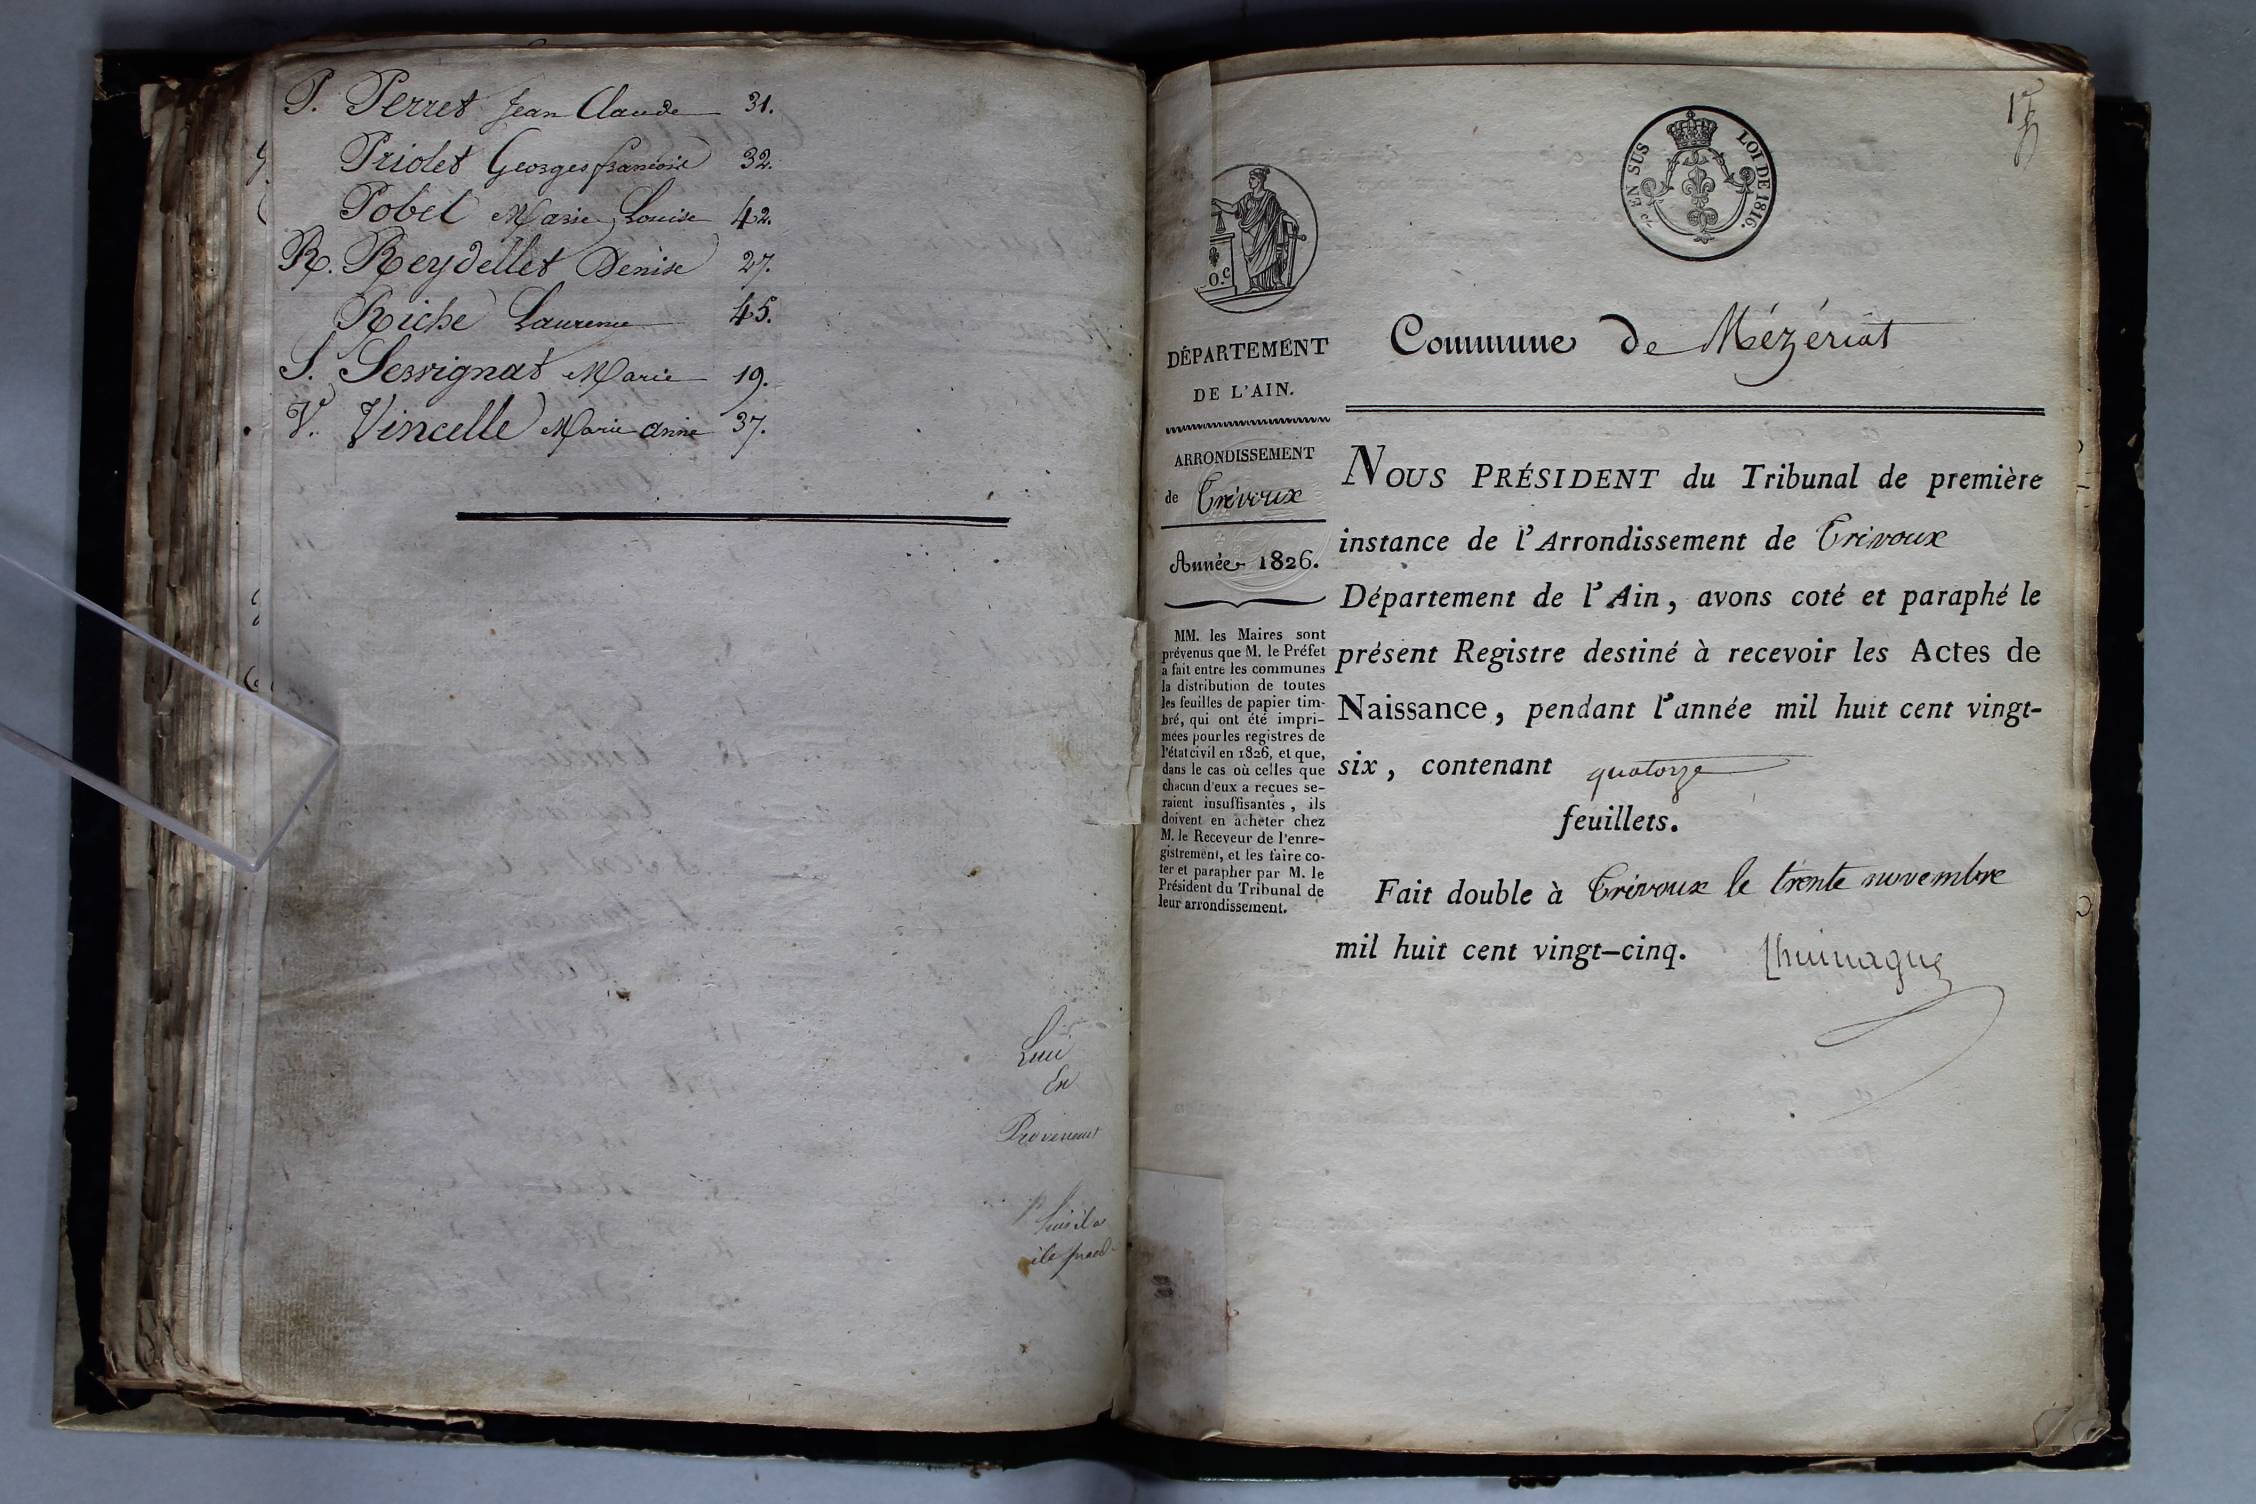 P. Perret Jean Claude 31.
Priolet Georges françois 32.
Pobel Marie Louise 42.
R. Reydellet Denise 27.
Riche Laurence 45.
S. Servignat Marie 19.
V. Vincelle Marie anne 37.
En
Provenant
EN SUS
LOI DE 1816.
0.c
DÉPARTEMENT
DE L'AIN.
ARRONDISSEMENT
de Trévoux
Année 1826.
MM. les Maires sont
prévenus que M. le Préfet
a fait entre les communes
la distribution de toutes
les feuilles de papier tim-
bré, qui ont été impri-
mées pour les registres de
l'état civil en 1826, et que,
dans le cas où celles que
chacun d'eux a reçues se-
raient insuffisantes, ils
doivent en acheter chez
M. le Receveur de l'enre-
gistrement, et les faire co-
ter et parapher par M. le
Président du Tribunal de
leur arrondissement.
Commune de Mézériat
NOUS PRÉSIDENT du Tribunal de première
instance de l'Arrondissement de Trévoux
Département de l'Ain, avons coté et paraphé le
présent Registre destiné à recevoir les Actes de
Naissance, pendant l'année mil huit cent vingt-
six, contenant quatorze
feuillets.
Fait double à Trévoux le trente novembre
mil huit cent vingt-cinq.